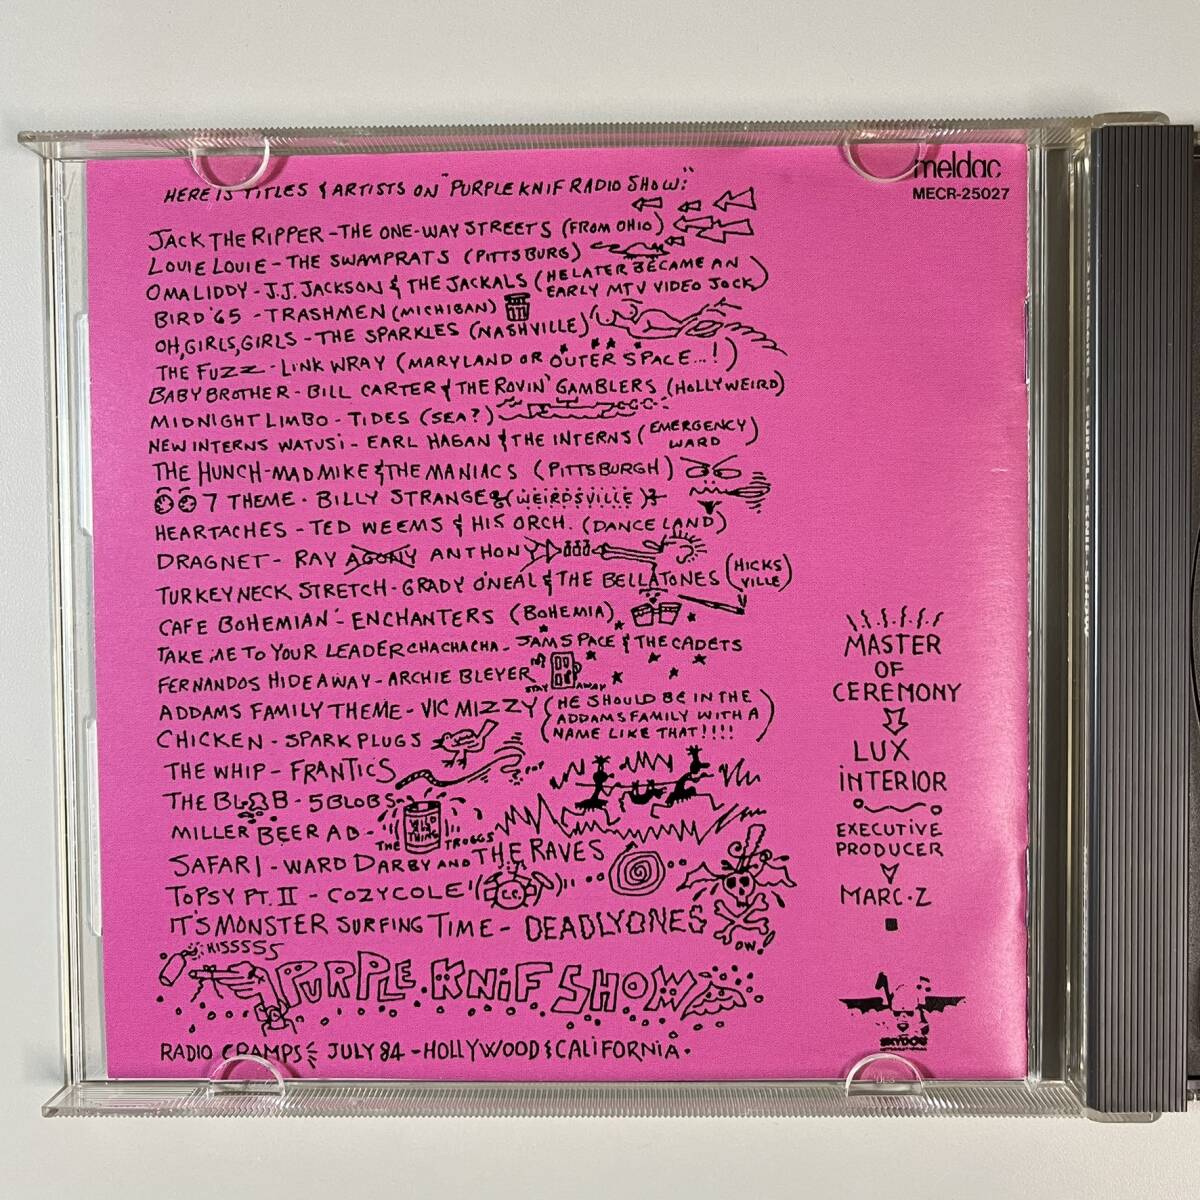 HERE IS TITLES & ARTISTS ON "PURPLE KNIF RADIO SHOW:"
meldac
MECR-25027
JACK THE RIPPER - THE ONE-WAY STREETS (FROM OHIO)
LOUIE LOUIE - THE SWAMPRATS (PITTSBURG)
OMALIDDY - J.J. JACKSON & THE JACKALS (HE LATER BECAME AN EARLY MTV VIDEO JOCK)
BIRD '65 - TRASHMEN (MICHIBAN)
OH, GIRLS, GIRLS - THE SPARKLES (NASHVILLE)
THE FUZZ - LINK WRAY (MARYLAND OR OUTER SPACE...!)
BABY BROTHER - BILL CARTER & THE ROVIN' GAMBLERS (HOLLYWEIRD)
MIDNIGHT LIMBO - TIDES (SEA?)
NEW INTERNS WATUSI - EARL HAGAN & THE INTERNS (EMERGENCY WARD)
THE HUNCH - MAD MIKE & THE MANIACS (PITTSBURGH)
007 THEME - BILLY STRANGE (WEIRDSVILLE)
HEARTACHES - TED WEEMS & HIS ORCH. (DANCE LAND)
DRAGNET - RAY AGONY ANTHONY
TURKEY NECK STRETCH - GRADY O'NEAL & THE BELLATONES (HICKSVILLE)
CAFE BOHEMIAN - ENCHANTERS (BOHEMIA)
TAKE ME TO YOUR LEADER CHACHACHA - JAM SPACE & THE CADETS
FERNANDOS HIDEAWAY - ARCHIE BLEYER
STAY AWAY
ADDAMS FAMILY THEME - VIC MIZZY (HE SHOULD BE IN THE ADDAMS FAMILY WITH A NAME LIKE THAT!!!!)
CHICKEN - SPARK PLUGS
THE WHIP - FRANTICS
THE BLOB - 5 BLOBS
MILLER BEER AD - THE WILD THING TROGGS
SAFARI - WARD DARBY AND THE RAVES
TOPSY PT. II - COZY COLE
C.C.
IT'S MONSTER SURFING TIME - DEADLY ONES
OW!
HISSSSS
PURPLE KNIF SHOW
RADIO CRAMPS JULY 84 - HOLLYWOOD & CALIFORNIA.
MASTER
OF
CEREMONY
LUX
INTERIOR
EXECUTIVE
PRODUCER
MARC. Z
SKYDOG